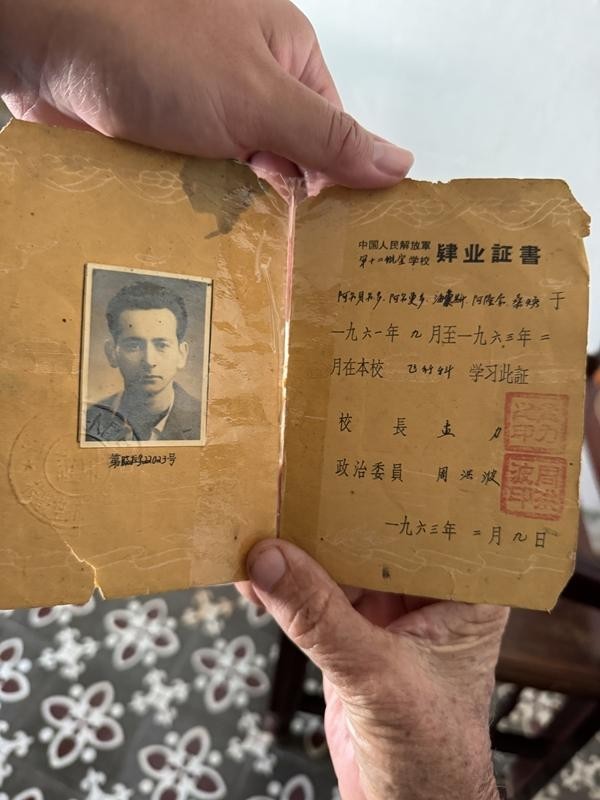 第临肄22023号
中国人民解放軍
第十二航空学校
肄业証書
阿隆 桑 于
一九六一年 九 月至一九六三年 二
月在本校 飞行科 学习此証
校 長 孟 力
政治委員 周 洪 波
周洪波印
一九六三年 二 月 九 日